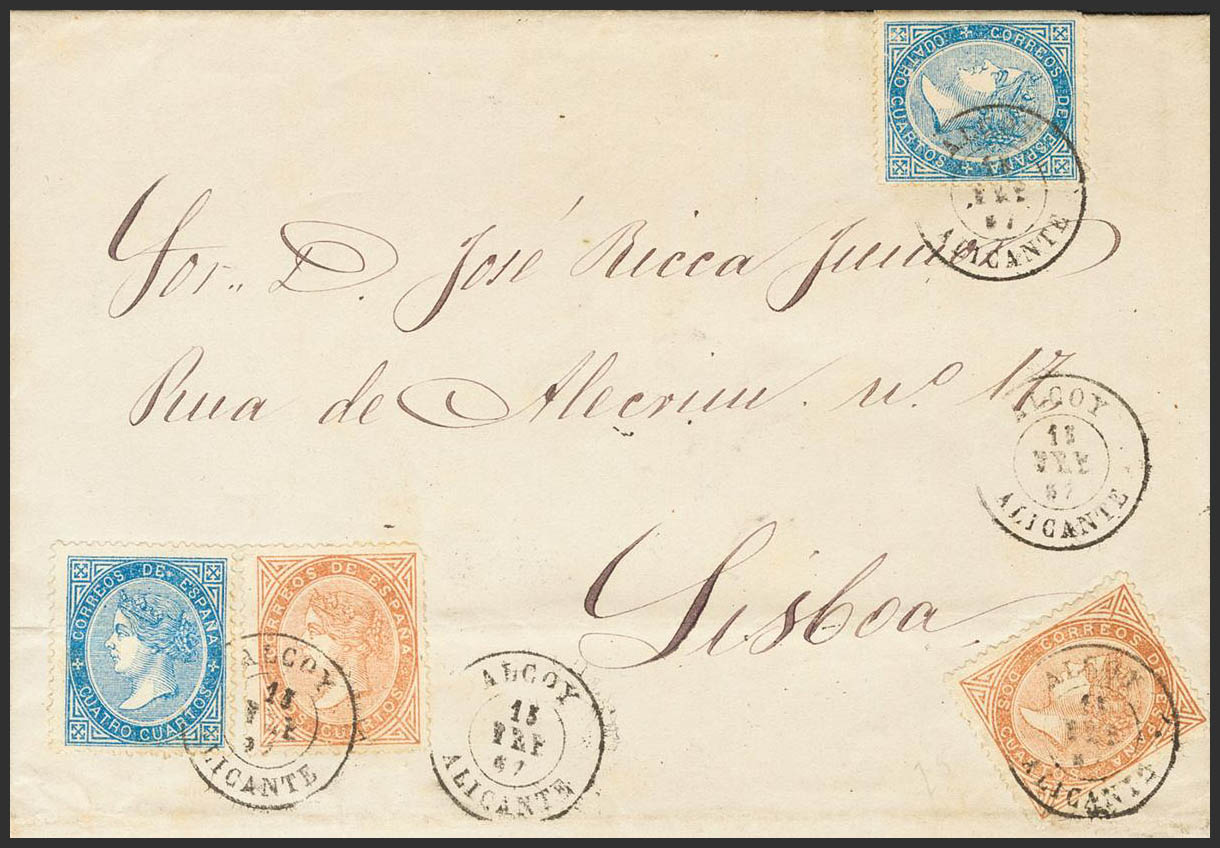 CORREOS DE ESPAÑA
CUATRO CUARTOS
ALICANTE
Sor. D. José Ricca Junior
Rua de Alecrim nº 17
ALCOY
15
FEB
67
ALICANTE
Lisboa
CORREOS DE ESPAÑA
CUATRO CUARTOS
CORREOS DE ESPAÑA
CUARTOS
ALCOY
15
ALICANTE
ALCOY
15
FEB
67
ALICANTE
CORREOS DE ESPAÑA
DOS CUARTOS
ALCOY
ALICANTE